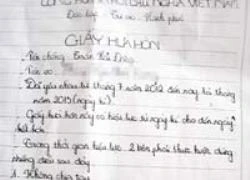 CỘNG HÒA XÃ HỘI CHỦ NGHĨA VIỆT NAM
Độc lập - Tự do - Hạnh phúc
GIẤY HỨA HÔN
- Tên chồng:
- Tên vợ:
- Đã yêu nhau từ tháng 7 năm 2012 đến nay là tháng
năm 2013 (ngày kí)
- Giấy hứa hôn này có hiệu lực từ ngày kí cho đến ngày
kết hôn
- Trong thời gian hiệu lực 2 bên phải thực hiện đúng
những điều sau đây
1. Không chia tay